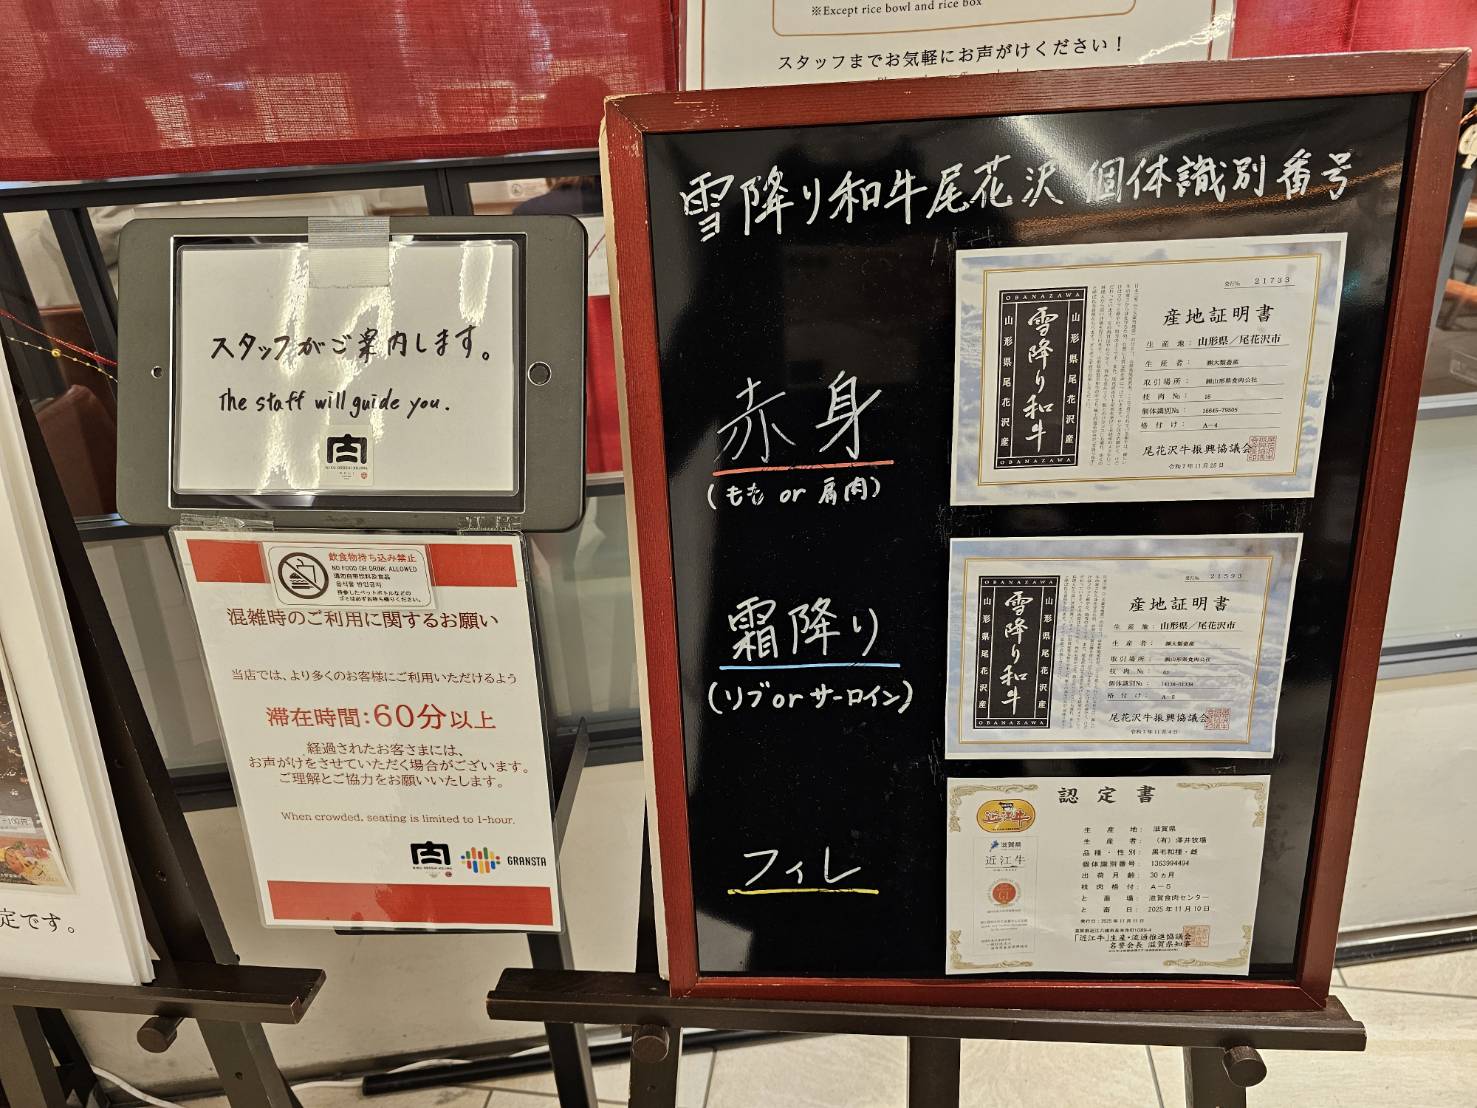 ※Except rice bowl and rice box
スタッフまでお気軽にお声がけください！
スタッフがご案内します。
The staff will guide you.
肉
飲食物持ち込み禁止
NO FOOD OR DRINK ALLOWED
混雑時のご利用に関するお願い
当店では、より多くのお客様にご利用いただけるよう
滞在時間:60分以上
経過されたお客さまには、
お声がけをさせていただく場合がございます。
ご理解とご協力をお願いいたします。
When crowded, seating is limited to 1-hour.
肉
GRANSTA
定です。
雪降り和牛尾花沢 個体識別番号
赤身
(もも or 肩肉)
霜降り
(リブorサーロイン)
フィレ
発行№ 21733
OBANAZAWA
雪降り和牛
山形県尾花沢産
山形県尾花沢産
OBANAZAWA
産地証明書
生産地: 山形県／尾花沢市
生産者: ㈱大類畜産
取引場所: ㈱山形県食肉公社
枝肉№: 16
個体識別№:
格付け: A-4
尾花沢牛振興協議会
令和7年11月25日
発行№ 21593
OBANAZAWA
雪降り和牛
山形県尾花沢産
山形県尾花沢産
OBANAZAWA
産地証明書
生産地: 山形県／尾花沢市
生産者: ㈱大類畜産
取引場所: ㈱山形県食肉公社
枝肉№
個体識別№:
格付け:
尾花沢牛振興協議会
令和7年11月4日
認定書
近江牛
滋賀県
近江牛
生産地: 滋賀県
生産者: (有)澤井牧場
品種・性別: 黒毛和種・雌
個体識別番号: 1363994494
出荷月齢: 30ヵ月
枝肉格付: A-5
と畜場: 滋賀食肉センター
と畜日: 2025年11月10日
発行日:2025年11月11日
「近江牛」生産・流通推進協議会
名誉会長 滋賀県知事